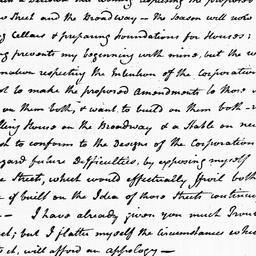 a decision
w Street and the Broadway — the Season will now
g Cellars & preparing foundations for Houses;
g prevents my beginning with mine, but the w
respecting the Intention of the Corporation
t to make the proposed Amendments to those
on them both, & want to build on them both
lling House on the Broadway & a Stable on
sh to conform to the Designs of the Corporation
gard future Difficulties, by exposing myself
e Street, which would effectually spoil both
e if built on the Idea of those Streets continuing
— I have already given you much Trou
ect; but I flatter myself the circumstances whi
it, will afford an apology —